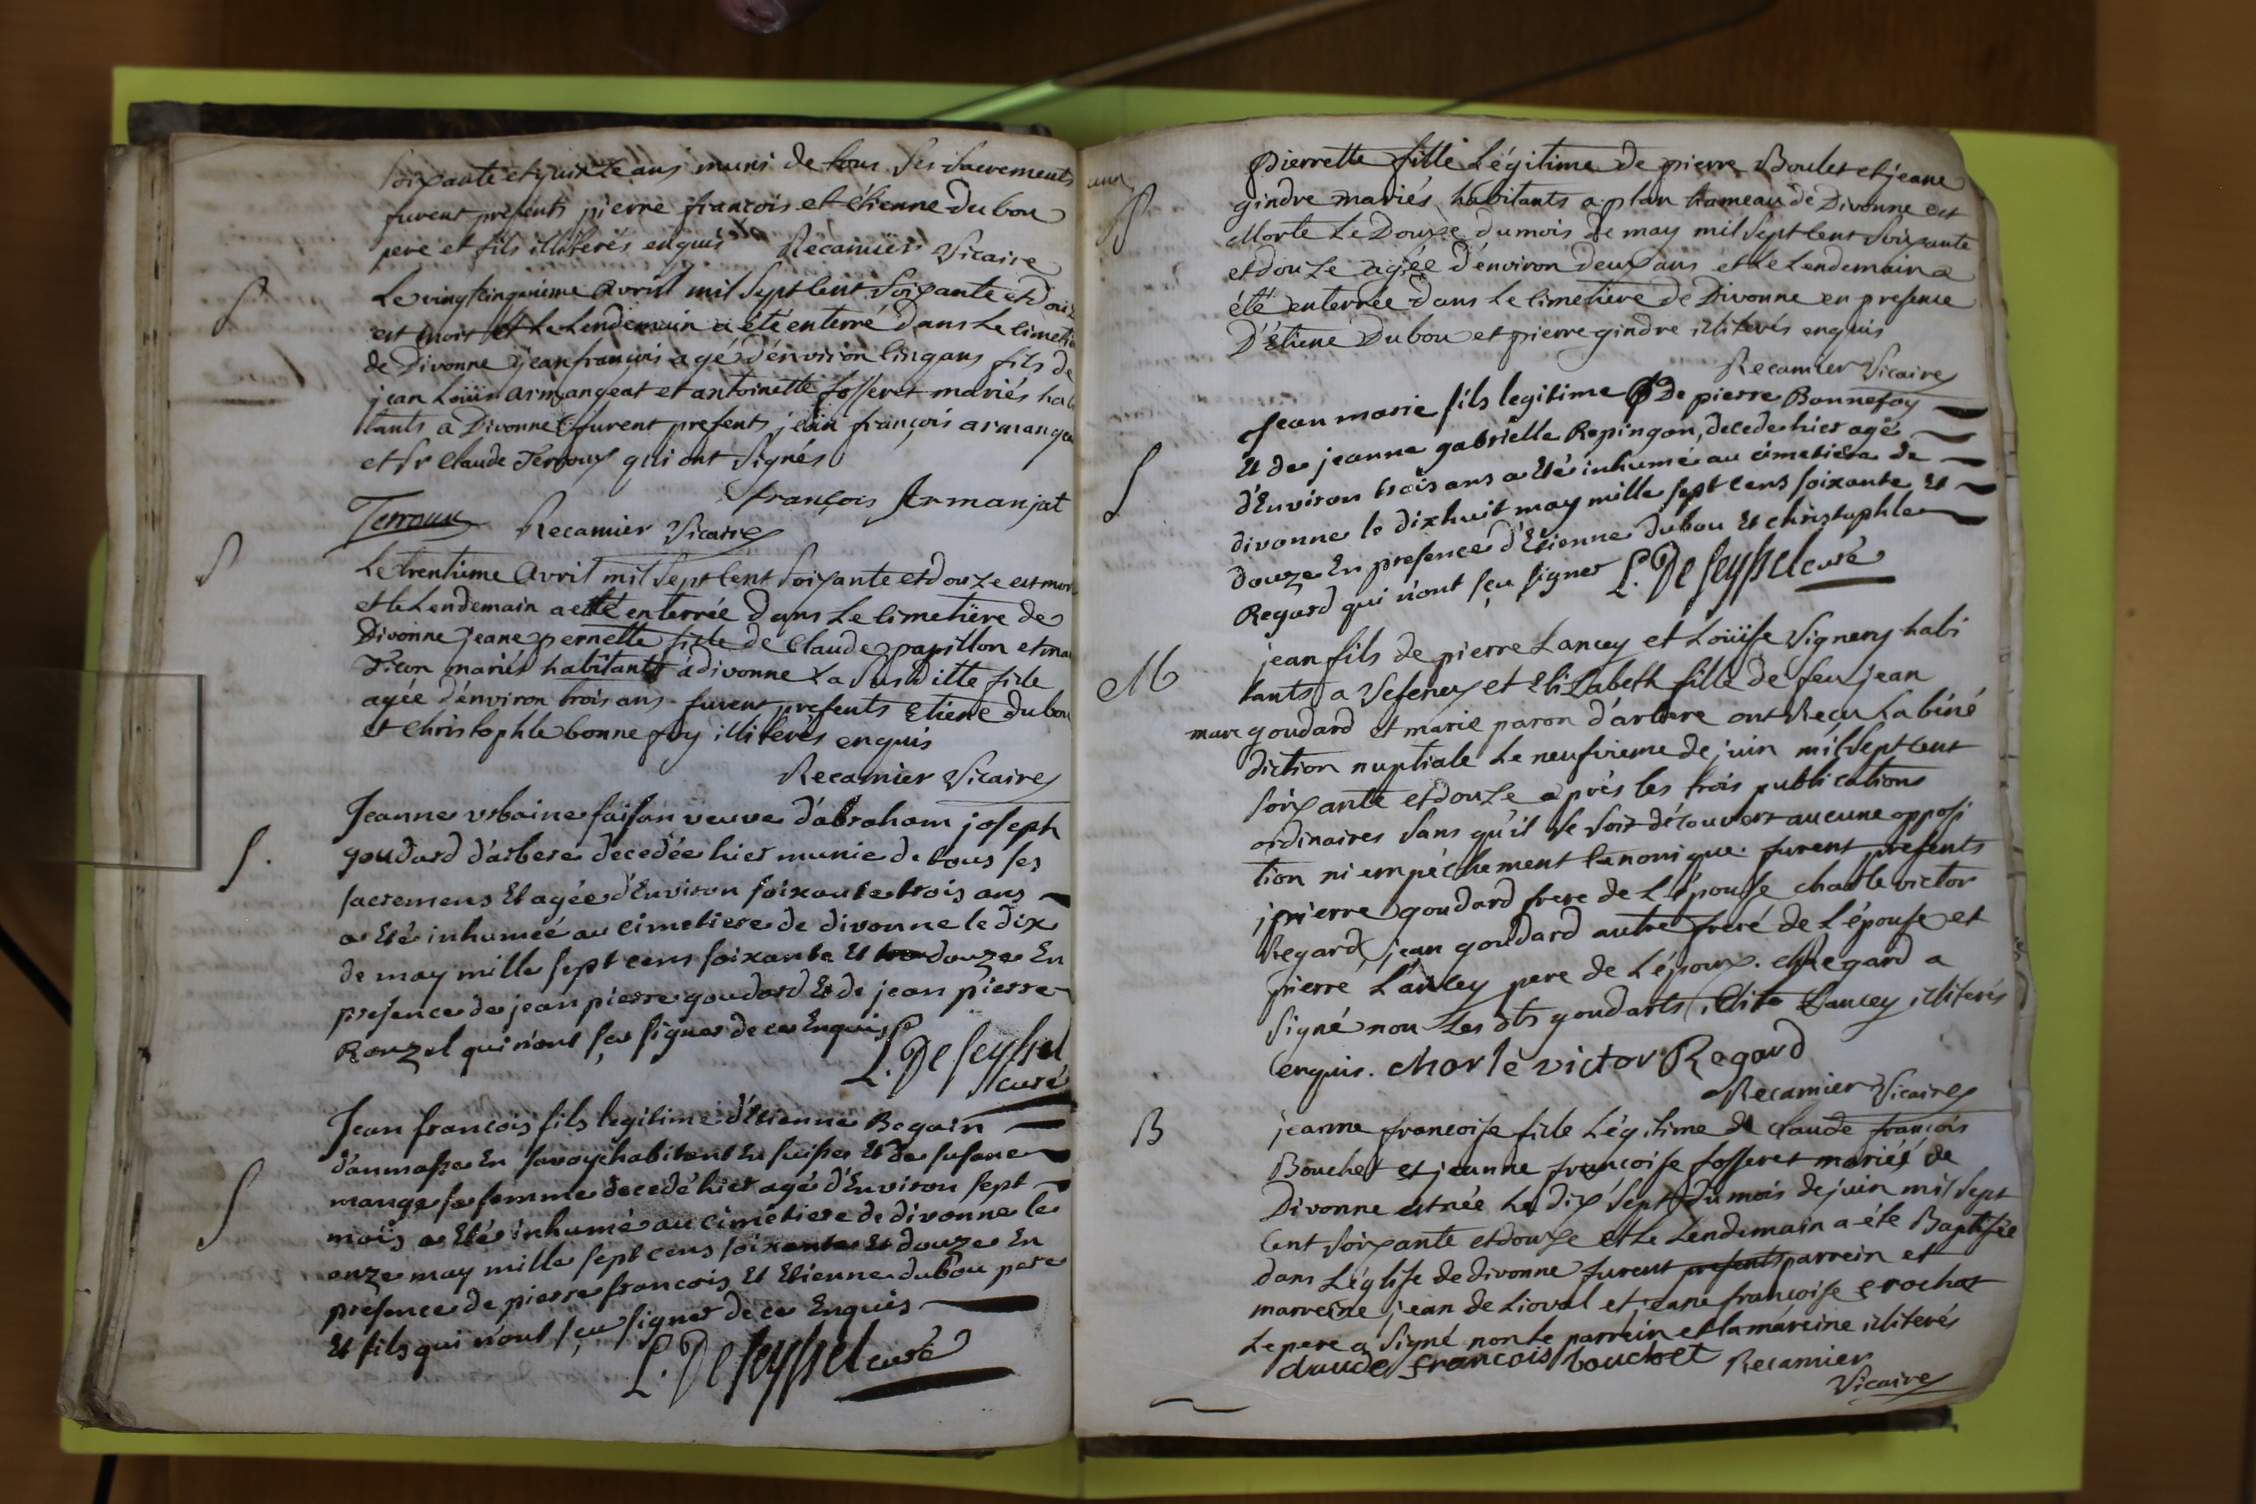 soixante et quinze ans muni de tous ses sacrements
furent presents pierre francois et étienne dubou
pere et fils illiterés enquis Recamier Vicaire
S
Le vingtcinquieme avril mil sept cent soixante et douze
est mort et le Lendemain a été enterré dans Le cimeti
de Divonne jean francois agé d'énviron cinq ans fils de
jean Loüis armangeat et antoinette fosseret mariés hab
tants a Divonne furent presents jean françois armangea
et sr Claude Terroux qui ont signés
françois Armanjat
Terroux Recamier Vicaire
S
Le trentieme Avril mil sept cent soixante et douze est mor
et le Lendemain a etté enterrée dans Le cimetiere de
Divonne jeane pernette fille de Claude papillon et ma
mariés habitants á divonne La susditte fille
agée d'énviron trois ans furent presents Etiene dubou
et Christophle bonnefoy illiterés enquis
Recamier Vicaire
S.
Jeanne urbaine faisan veuve d'abraham joseph
goudard d'arbere decedée hier munie de tous ses
sacremens Et agée d'Environ soixante trois ans
a Eté inhumée au cimetiere de divonne le dix
de may mille sept cens soixante Et douze En
presence de jean pierre goudard Et de jean pierre
Rouzel qui n'ont sçu signer de ce Enquis
L. De seyssel
curé
S
Jean francois fils legitime d'Etienne Begain
d'anmasse En savoye habitant En suisse Et de susane
mange sa femme decedé hier agé d'Environ sept
mois a Eté inhumé au cimetiere de divonne le
onze may mille sept cens soixante Et douze En
presence de pierre francois Et Etienne dubou pere
Et fils qui n'ont sçu signer de ce Enquis
L. De seyssel curé
S
Pierrette fille Légitime de pierre Boulet et jeane
gindre mariés habitants a plan hameau de Divonne est
Morte Le Douze du mois de may mil sept cent soixante
et douze agée d'énviron deux ans et Le Lendemain a
été enterrée dans Le cimetiere de Divonne en presence
D'Etiene Dubou et pierre gindre illiterés enquis
Recamier Vicaire
S
Jean marie fils legitime De pierre Bonnefoy
Et de jeanne gabrielle Repingon, decede hier agé
d'Environ trois ans a Eté inhumé au cimetiere de
divonne le dixhuit may mille sept cens soixante Et
douze En presence d'Etienne dubou Et christophle
Regard qui n'ont sçu signer L. De seyssel curé
M
jean fils de pierre Lancey et Loüise Vignery habi
tants a Vesenex et Elizabeth fille de feu jean
marc goudard et marie paron d'arbere ont Reçu La béné
diction nuptiale Le neufvieme de juin mil sept cent
soixante et douze après les trois publications
ordinaires sans qu'il se soit découvert aucune opposi
tion ni empéchement canonique. furent presents
jpierre goudard frere de L'épouse charle victor
Regard jean goudard autre freré de L'épouse et
pierre Lancey pere de L'époux. Regard a
signé non Les dts goudarts Lancey illiterés
enquis. charle victor Regard
Recamier Vicaire
B
jeanne francoise fille Légitime de claude francois
Bouchet et jeanne francoise fosseret mariés de
Divonne est née Le dix sept du mois de juin mil sept
cent soixante et douze et Le Lendemain a été Baptisée
dans L'église de divonne furent presents parrein et
marreine jean de Lioval et jeane francoise crochat
Le pere a signé non le parrein et la mareine illiterés
claude francois bouchet Recamier
Vicaire